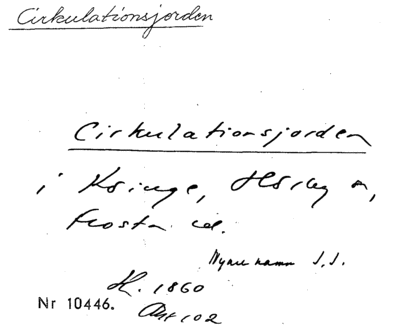 Cirkulationsjorden
Cirkulationsjorden
i Kringe, Hörby
Frosta
namn J.J.
H. 1860
Nr 10446.
Akt 102